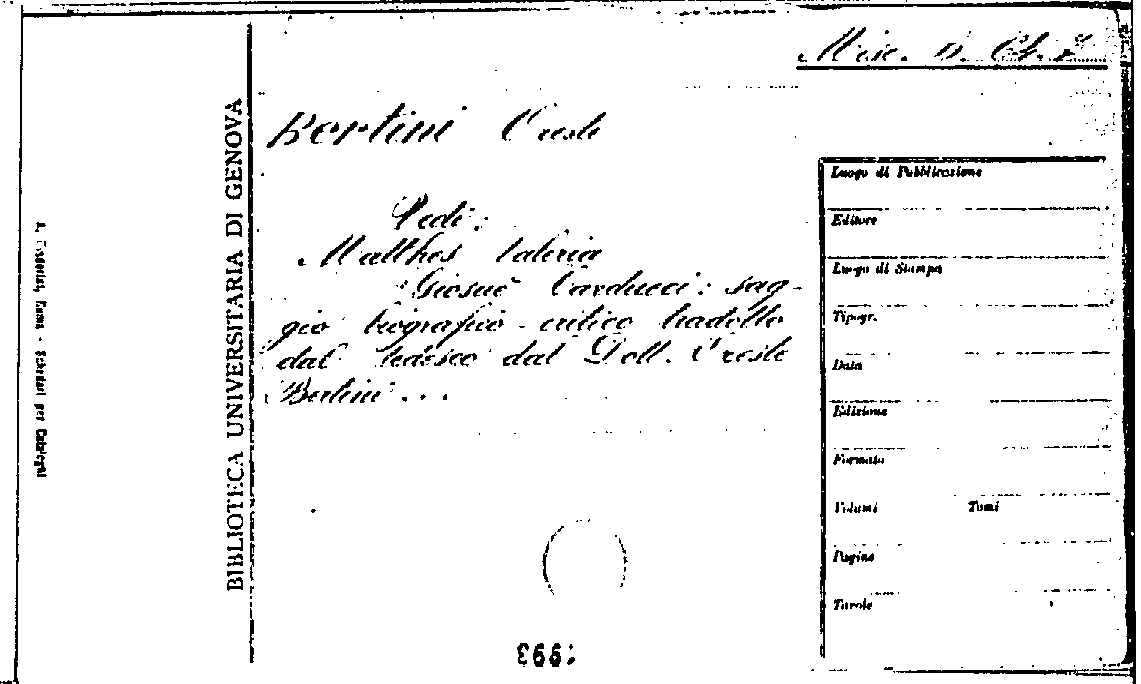 Misc. N.
Bertini Oreste
Vedi:
Matthes Valeria
Giosuè Carducci: sag-
gio biografico-critico tradotto
dal tedesco dal Dott. Oreste
Bertini...
BIBLIOTECA UNIVERSITARIA DI GENOVA
Roma - Schedari per Cataloghi
Luogo di Pubblicazione
Editore
Luogo di Stampa
Tipogr.
Data
Edizione
Formato
Volumi Tomi
Pagine
Tavole